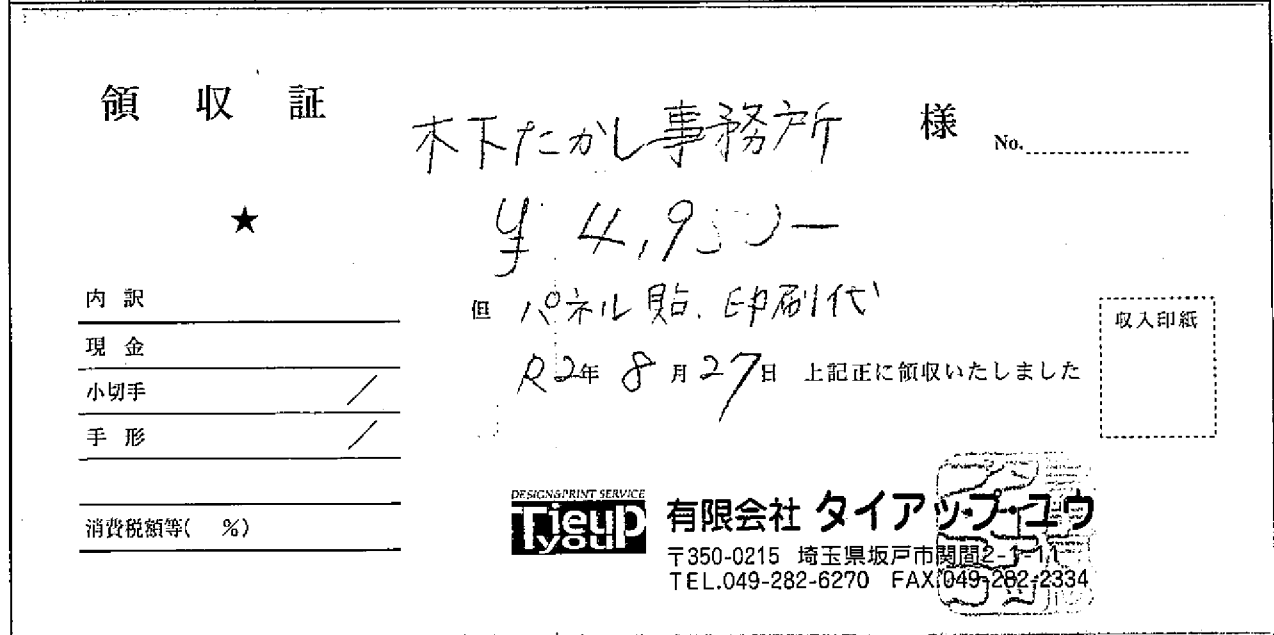 領収証
木下たかし事務所 様
No.
★
¥4,950-
内訳
但 パネル貼、印刷代
収入印紙
現金
R2年8月27日 上記正に領収いたしました
小切手 /
手形 /
消費税額等( %)
DESIGN&PRINT SERVICE
Tieup
you
有限会社 タイアップ・ユウ
〒350-0215 埼玉県坂戸市関間2-1-11
TEL.049-282-6270 FAX.049-282-2334